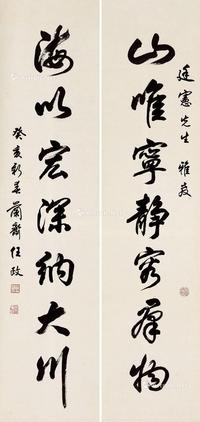 廷憲先生 雅教
山唯寧靜容群物
海以宏深納大川
癸亥新春蘭齋任政